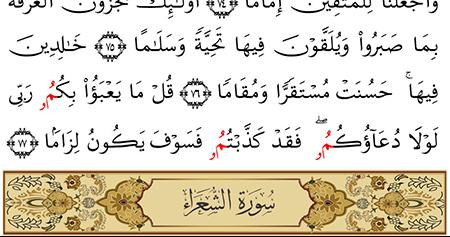 وَٱجْعَلْنَا لِلْمُتَّقِينَ إِمَامًا ٧٤ أُوْلَٰٓئِكَ يُجْزَوْنَ ٱلْغُرْفَةَ
بِمَا صَبَرُواْ وَيُلَقَّوْنَ فِيهَا تَحِيَّةً وَسَلَٰمًا ٧٥ خَٰلِدِينَ
فِيهَا ۚ حَسُنَتْ مُسْتَقَرًّا وَمُقَامًا ٧٦ قُلْ مَا يَعْبَؤُاْ بِكُمُۥ رَبِّى
لَوْلَا دُعَآؤُكُمُۥ ۖ فَقَدْ كَذَّبْتُمُۥ فَسَوْفَ يَكُونُ لِزَامًا ٧٧
سُورَةُ الشُّعَرَاءِ